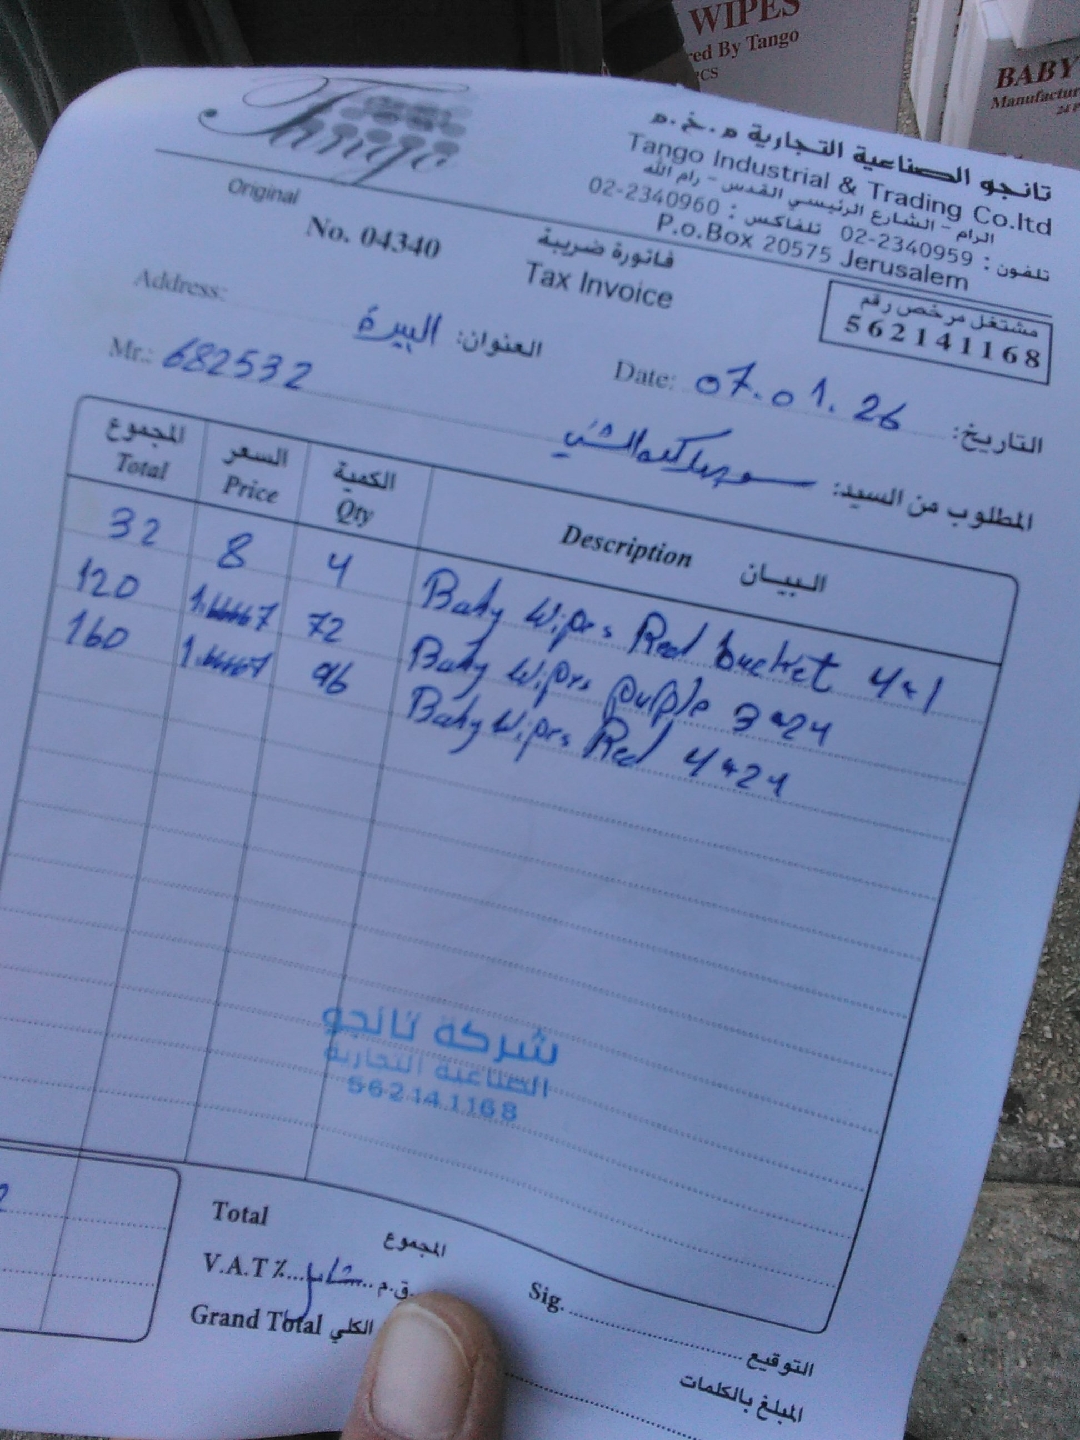 WIPES
ed By Tango
ecs
BABY
Manufactur
24 P
Tango
تانجو الصناعية التجارية م.خ.م
Tango Industrial & Trading Co.ltd
الرام - الشارع الرئيسي القدس - رام الله
تلفون : 02-2340959 تلفاكس : 02-2340960
P.o.Box 20575 Jerusalem
Original
No. 04340
فاتورة ضريبة
Tax Invoice
مشتغل مرخص رقم
562141168
Address: البيرة العنوان:
Date: 07.01.26 التاريخ:
Mr.: 682532
المطلوب من السيد: سوبر ماركت
المجموع السعر الكمية
Total Price Qty Description البيان
32 8 4 Baby Wipes Red bucket 4*1
120 1.66667 72 Baby Wipes purple 3*24
160 1.66667 96 Baby Wipes Red 4*24
شركة تانجو
الصناعية التجارية
562141168
2
Total المجموع
V.A.T٪ شامل ق.م.
Grand Total الكلي
Sig. التوقيع
المبلغ بالكلمات